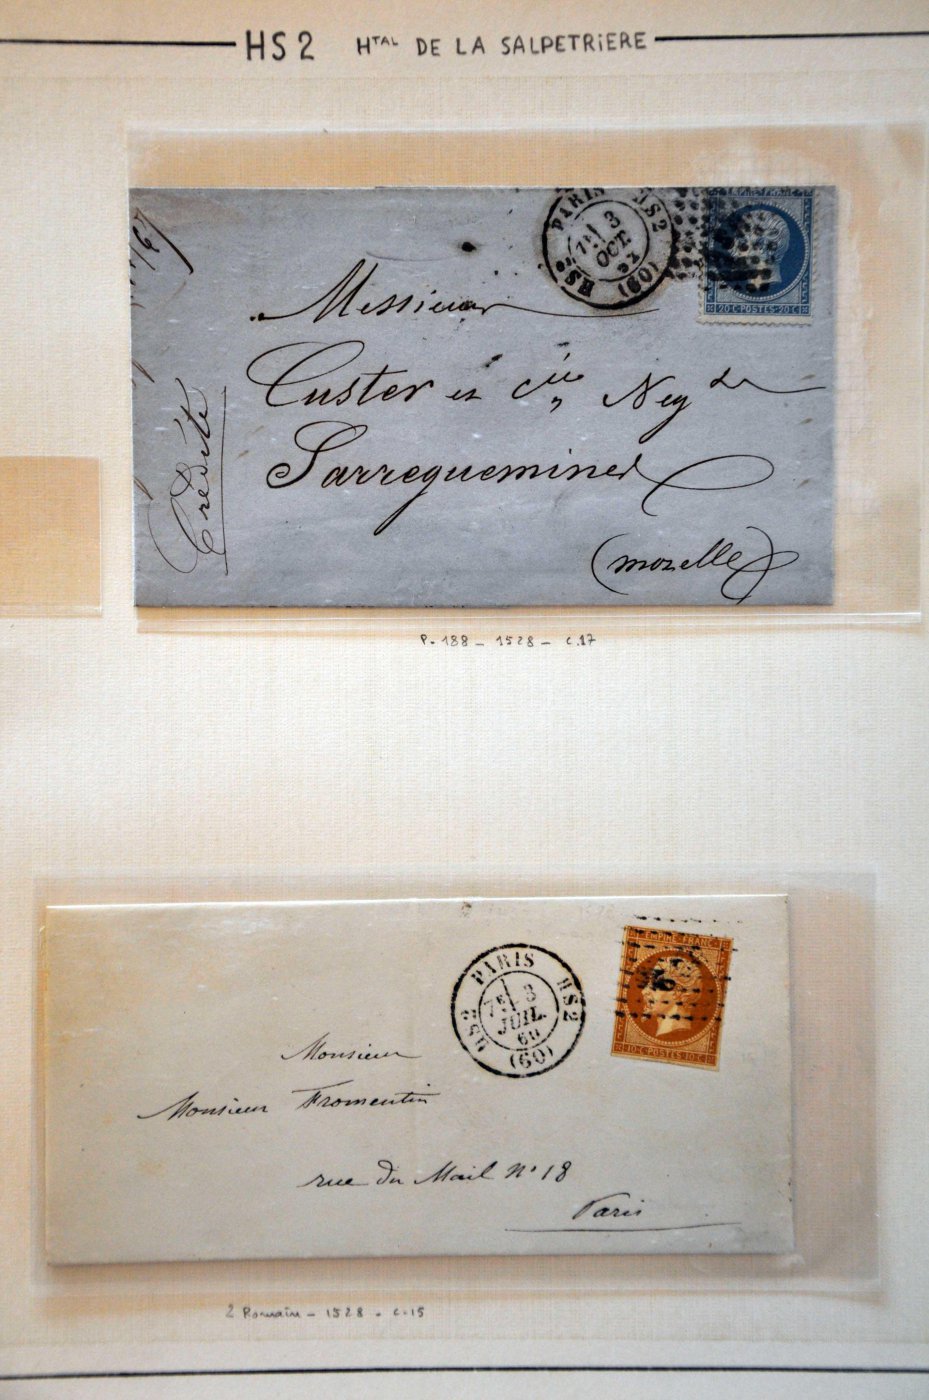 HS2 HTAL DE LA SALPETRIERE
PARIS HS2
7E 3
OCT.
62
HS2 (60)
EMPIRE FRANC
20 C POSTES 20 C
Messieurs
Custer et Cie Neg
Sarreguemines
(mozelle)
Crédite
P. 188 - 1528 - C.17
PARIS HS2
7E 3
JUIL.
60
HS2 (60)
EMPIRE FRANC
10 C POSTES 10 C
Monsieur
Monsieur Fromentin
rue du Mail N° 18
Paris
2 Romain - 1528 - C.15